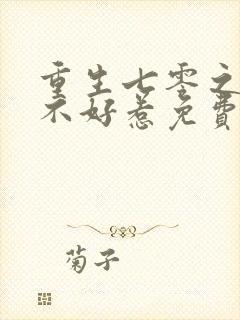 重生七零之
不好惹免费
菊子